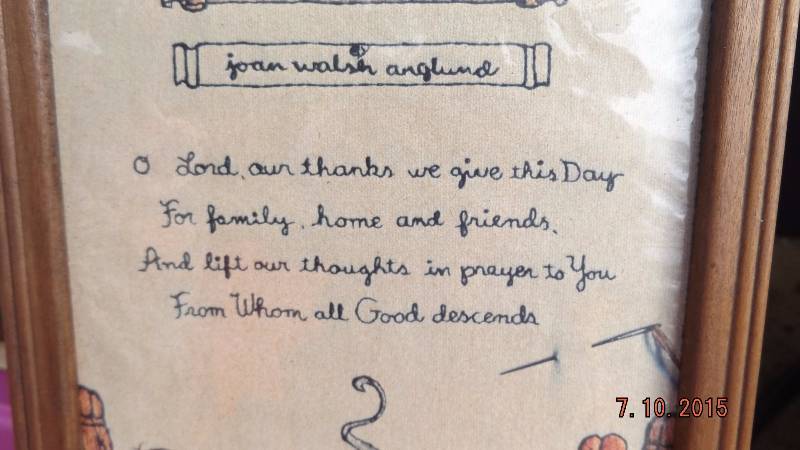 joan walsh anglund
O Lord, our thanks we give this Day
For family, home and friends,
And lift our thoughts in prayer to You
From Whom all Good descends
7.10.2015